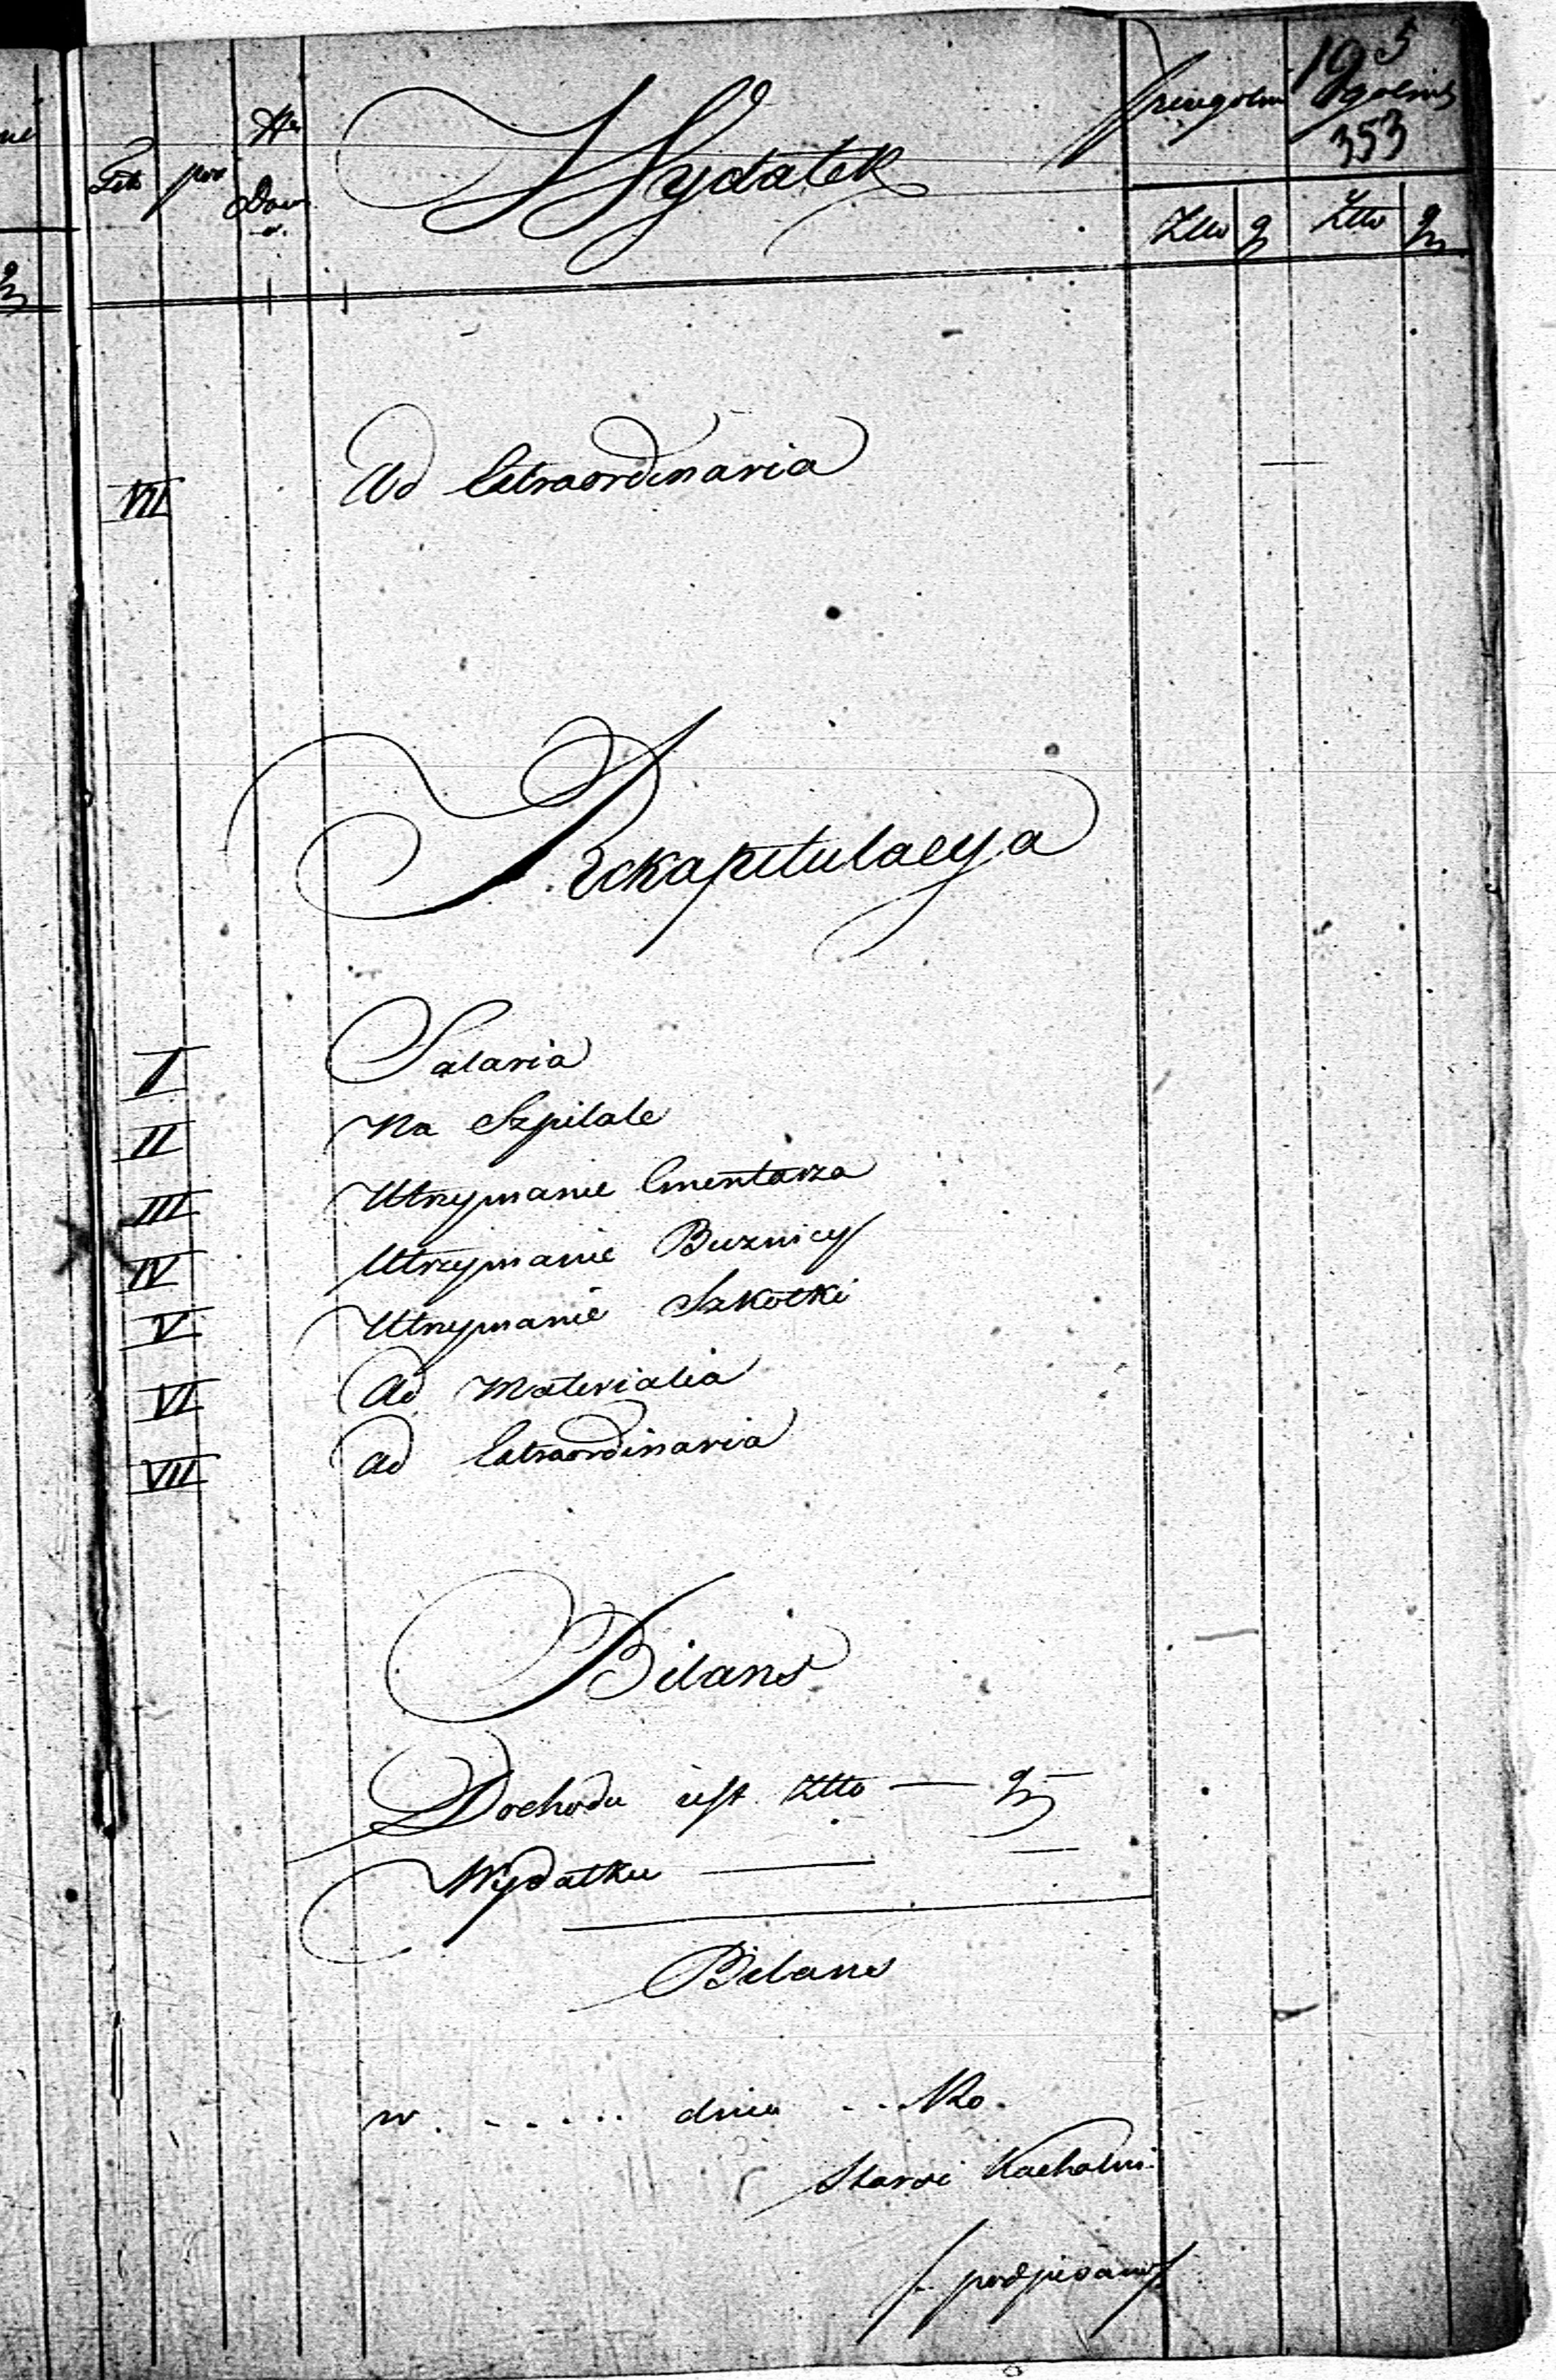 195
353
Tit. poz. Nr. Dow. Wydatek szczegolni ogolnie
Zło g Zło gr
VII Ad Extraordinaria —
Rekapitulacya
I Salaria
II Na Szpitale
III Utrzymanie Cmentarza
IV Utrzymanie Buznicy
V Utrzymanie Szkołki
VI Ad Materialia
VII Ad Extraordinaria
Bilans
Dochodu iest Złto — gr —
Wydatku — —
Bilans
w . . . . . . dnia . . . Ro.
Starsi Kachalni
/: podpisano :/